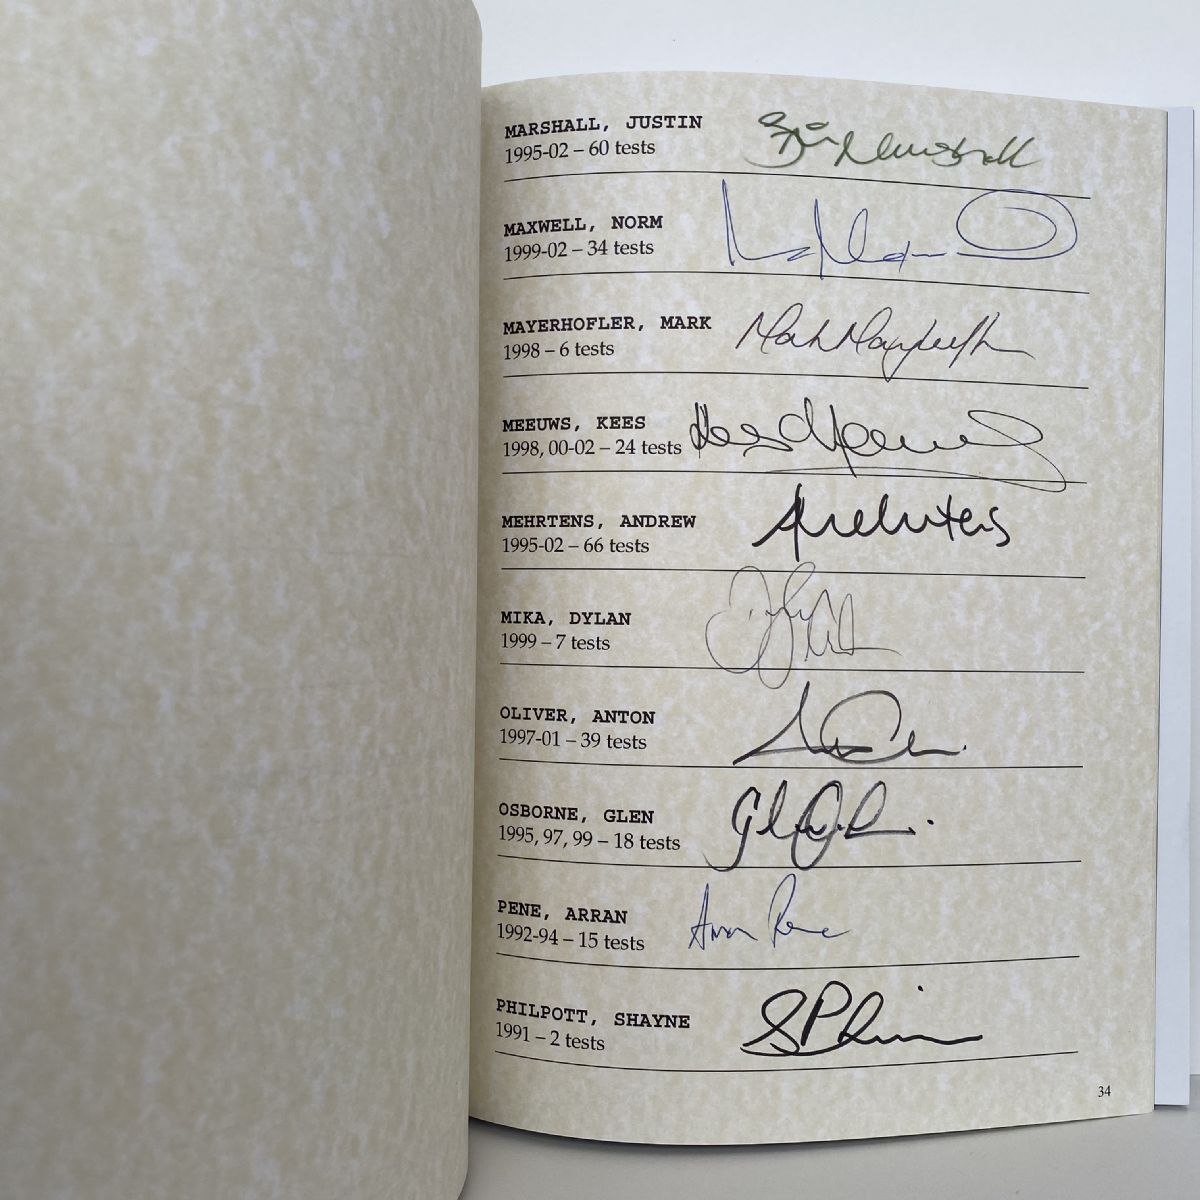 MARSHALL, JUSTIN
1995-02 – 60 tests
MAXWELL, NORM
1999-02 – 34 tests
MAYERHOFLER, MARK
1998 – 6 tests
Mark Mayerhofler
MEEUWS, KEES
1998, 00-02 – 24 tests
MEHRTENS, ANDREW
1995-02 – 66 tests
MIKA, DYLAN
1999 – 7 tests
OLIVER, ANTON
1997-01 – 39 tests
OSBORNE, GLEN
1995, 97, 99 – 18 tests
PENE, ARRAN
1992-94 – 15 tests
Arran Pene
PHILPOTT, SHAYNE
1991 – 2 tests
34